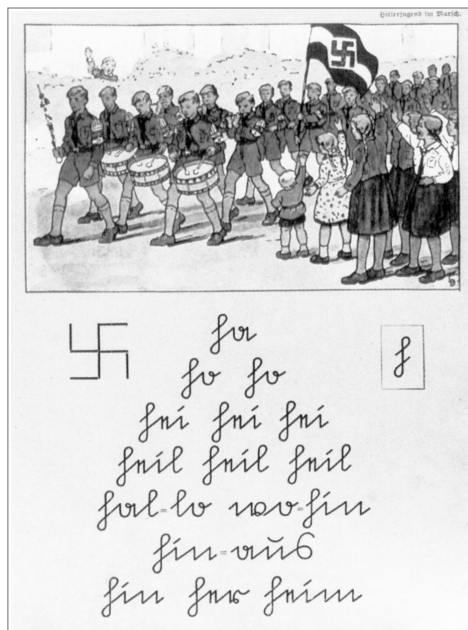 Hitlerjugend im Marsch.
ha
h
ho ho
hei hei hei
heil heil heil
hal=lo wo=hin
hin=aus
hin her heim